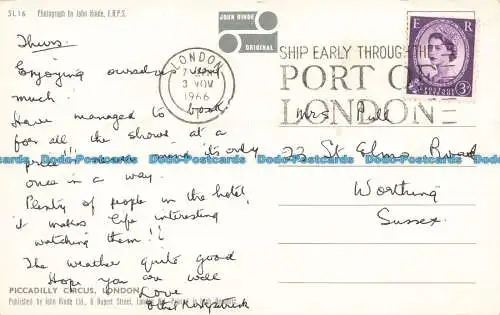 SL16 Photograph by John Hinde, F.R.P.S.
JOHN HINDE
ORIGINAL
Thurs.
Enjoying ourselves very
much.
Have managed to book
for all the shows at a
price!! never mind its only
once in a way.
Plenty of people in the hotel,
it makes life interesting
watching them!!
The weather quite good
Hope you are well
Love
PICCADILLY CIRCUS, LONDON
Published by John Hinde Ltd., 8 Regent Street, London
LONDON
3 NOV
1966
SHIP EARLY THROUGH THE
PORT OF
LONDON
E R
POSTAGE REVENUE
3D
Mrs Pull
23 St Elms Road
Worthing
Sussex.
Dodo-Postcards.com Dodo-Postcards.com Dodo-Postcards.com